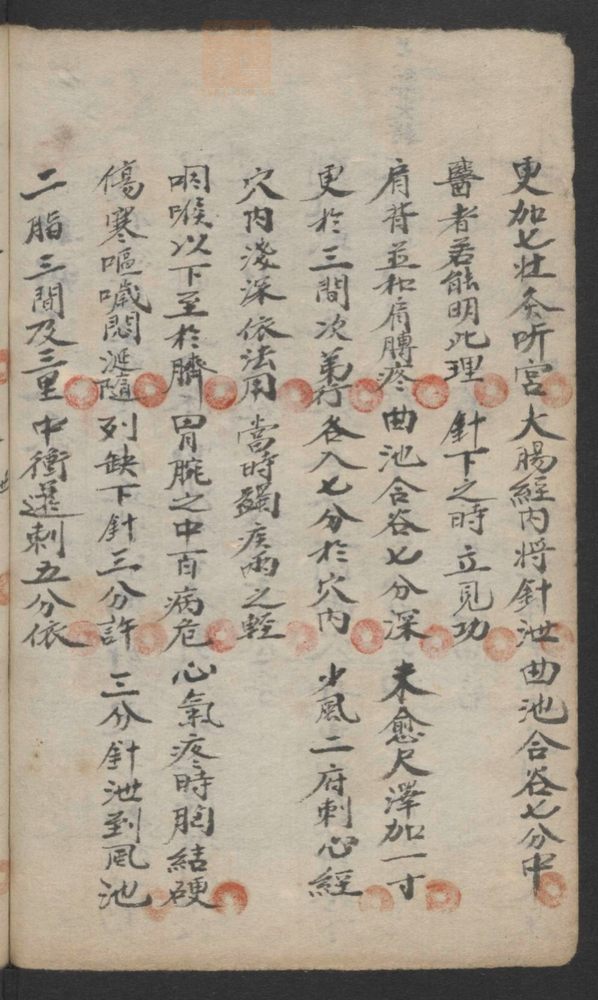 更加七壯灸听宮 大腸經內将針泄 曲池合谷七分中
醫者若能明此理 針下之時立見功
肩背並和肩膊疼 曲池合谷七分深 未愈尺澤加一寸
更於三間次第行 各入七分於穴內 少風二府刺心經
穴內淺深依法用 當時蠲疾兩之輕
咽喉以下至於臍 胃脘之中百病危 心氣疼時胸結硬
傷寒嘔噦悶涎隨 列缺下針三分許 三分針泄到風池
二脂三間及三里 中衝還刺五分依